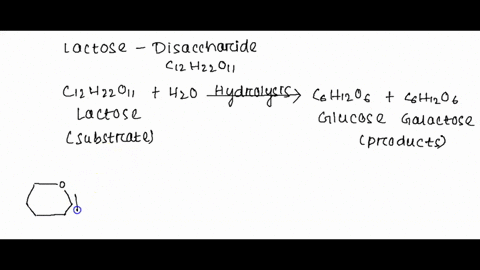 Lactose - Disaccharide
C12H22O11
C12H22O11 + H2O Hydrolysis → C6H12O6 + C6H12O6
Lactose Glucose Galactose
(substrate) (products)
O